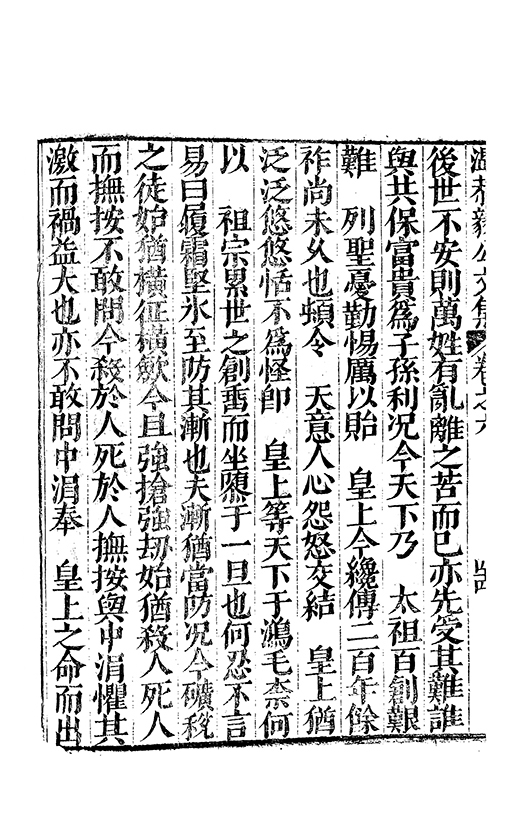 温恭毅公文集 卷之六 四
後世不安則萬姓有亂離之苦而已亦先受其難誰
與共保富貴為子孫利况今天下乃 太祖百創艱
難 列聖憂勤惕厲以貽 皇上今纔傳二百年餘
祚尚未久也頓令 天意人心怨怒交結 皇上猶
泛泛悠悠恬不為怪即 皇上等天下于鴻毛柰何
以 祖宗累世之創垂而坐隳于一旦也何忍不言
易曰履霜堅氷至防其漸也夫漸猶當防况今礦稅
之徒始猶橫征橫歛今且強搶強刼始猶殺人死人
而撫按不敢問今殺於人死於人撫按與中涓懼其
激而禍益大也亦不敢問中涓奉 皇上之命而出